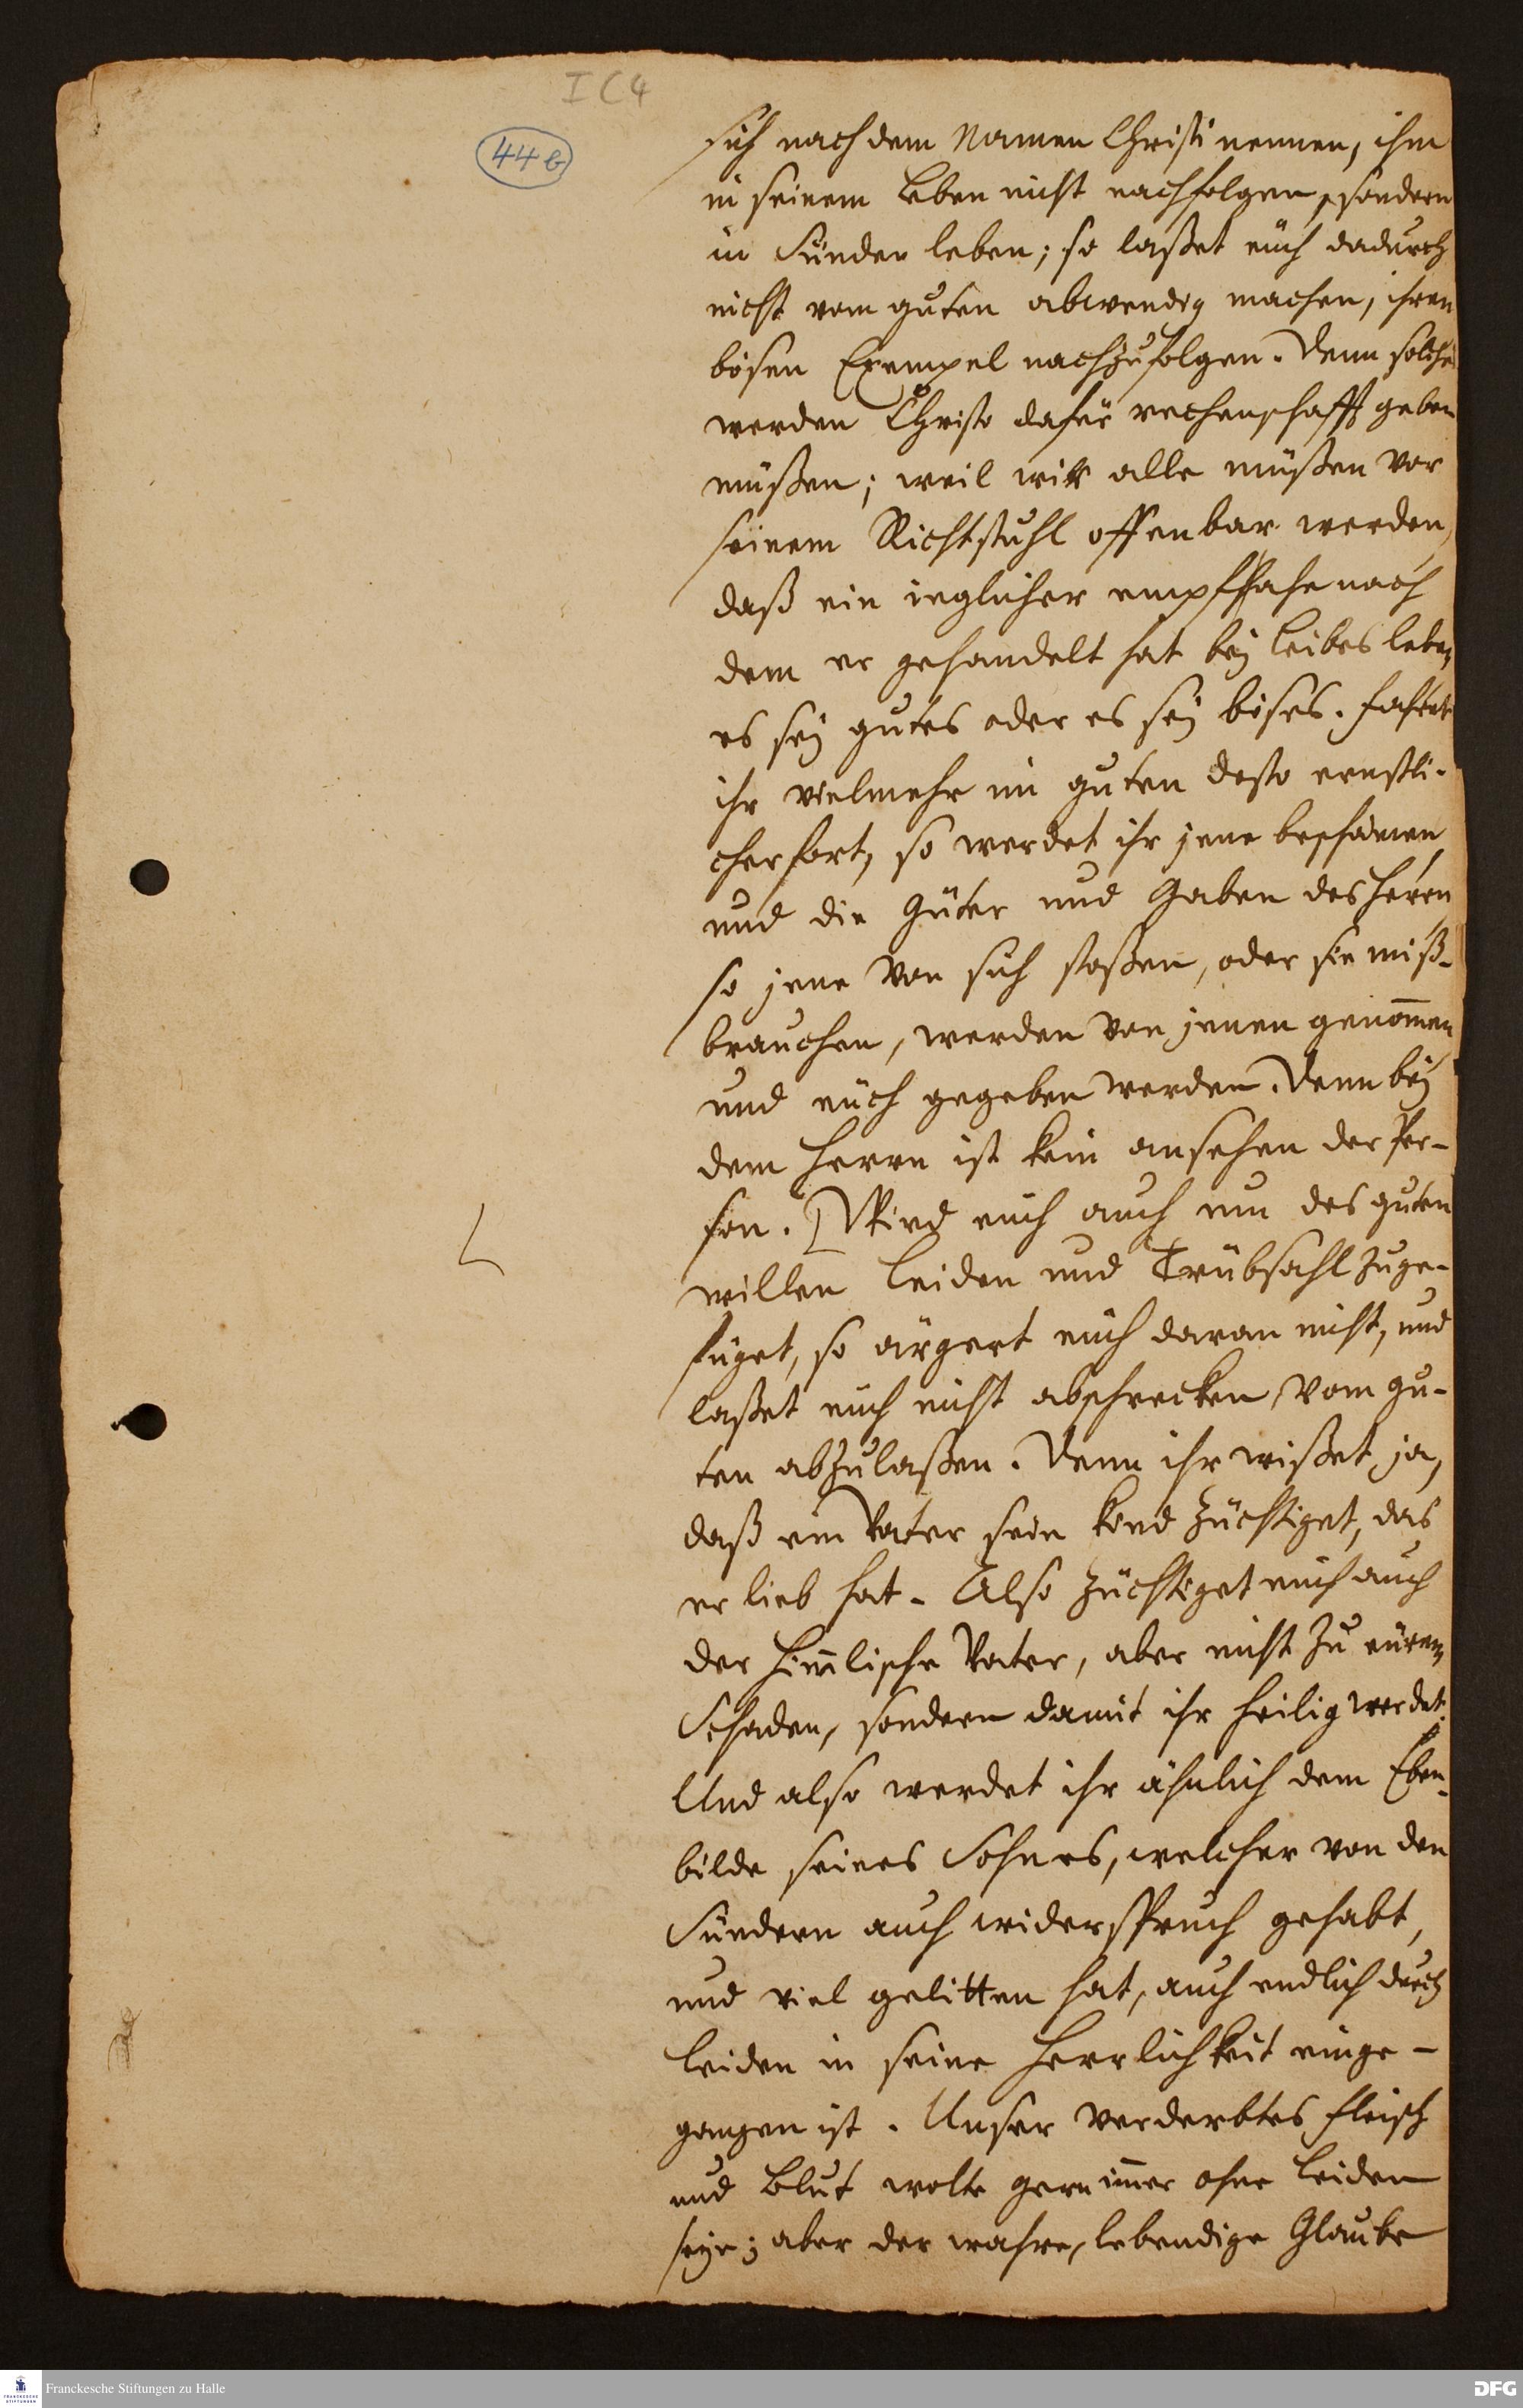 I C 4
44 b
sich nach dem Namen Christi nennen, ihm
in seinem Leben nicht nachfolgen, sondern
in Sünden leben; so laßet euch dadurch
nicht vom guten abwendig machen, ihren
bösen Exempel nachzufolgen. Denn solche
werden Christo dafür rechenschafft geben
müßen; weil wir alle müßen vor
seinem Richtstuhl offenbar werden,
daß ein ieglicher empffahe nach
dem er gehandelt hat bey Leibes leben,
es sey gutes oder es sey böses. Fahret
ihr vielmehr im guten desto ernstli-
cher fort, so werdet ihr jene beschämen
und die Güter und Gaben des Herrn
so jene von sich stoßen, oder sie miß-
brauchen, werden von jenen genom̄en
und euch gegeben werden. Denn bey
dem Herrn ist kein ansehen der Per-
son. [Wird euch auch um des guten
willen Leiden und Trübsahl zuge-
füget, so ärgert euch daran nicht, und
laßet euch nicht abschrecken vom gu-
ten abzulaßen. Denn ihr wißet ja,
daß ein Vater sein Kind züchtiget, das
er lieb hat. Also züchtiget euch auch
der him̄lische Vater, aber nicht zu eurem
Schaden, sondern damit ihr heilig werdet.
Und also werdet ihr ähnlich dem Eben-
bilde seines Sohnes, welcher von den
Sündern auch widerspruch gehabt,
und viel gelitten hat, auch endlich durch
Leiden in seine Herrlichkeit einge-
gangen ist. Unser verderbtes Fleisch
und Blut wolte gern im̄er ohne Leiden
seyn; aber der wahre, lebendige Glaube
Franckesche Stiftungen zu Halle
DFG